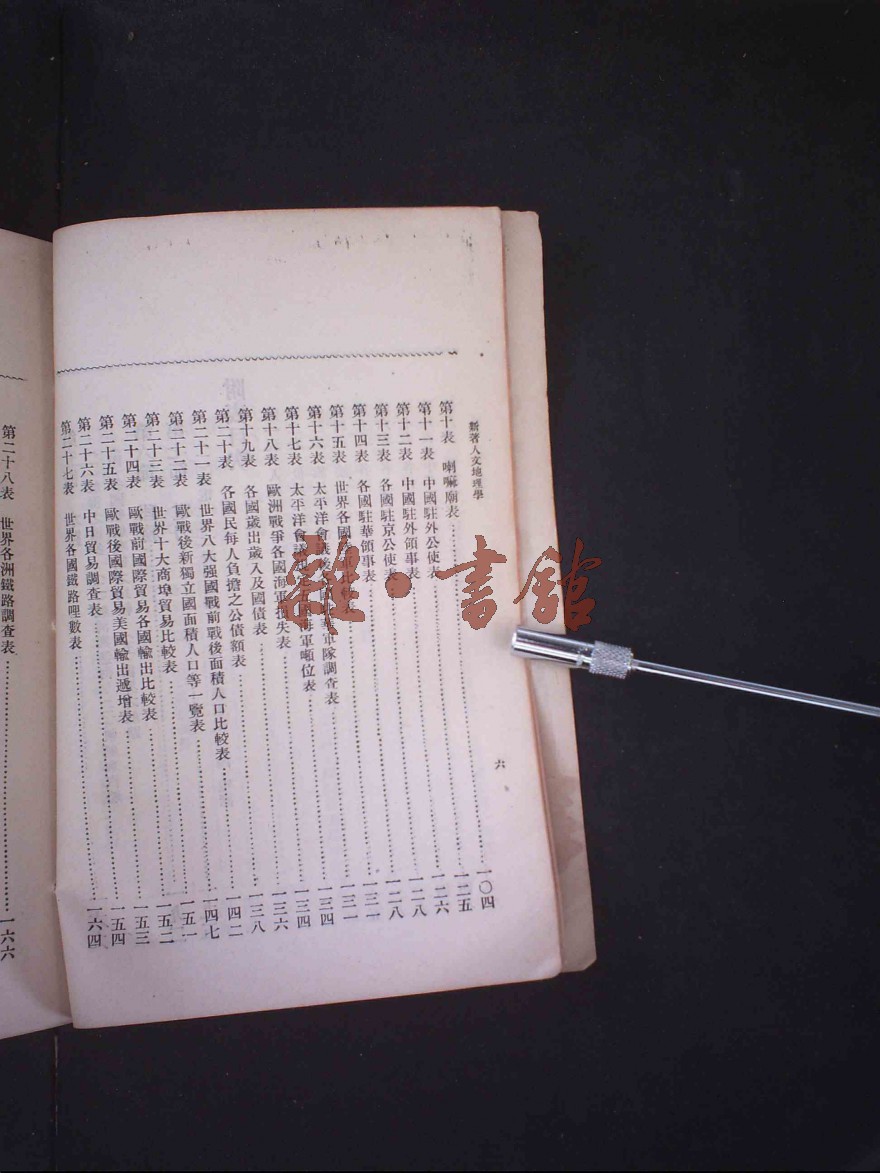 新著人文地理學 六
第十表 喇嘛廟表……一〇四
第十一表 中國駐外公使表……一二五
第十二表 中國駐外領事表……一二六
第十三表 各國駐京公使表……一二八
第十四表 各國駐華領事表……一二八
第十五表 世界各國比較表……一三一
第十六表 太平洋會議後華軍隊調查表……一三一
第十七表 太平洋會議海軍噸位表……一三四
第十八表 歐洲戰爭各國海軍損失表……一三四
第十九表 各國歲出歲入及國債表……一三六
第二十表 各國民每人負擔之公債額表……一三八
第二十一表 世界八大强國戰前戰後面積人口比較表……一四二
第二十二表 歐戰後新獨立國面積人口等一覽表……一四七
第二十三表 世界十大商埠貿易比較表……一五一
第二十四表 歐戰前國際貿易各國輸出比較表……一五二
第二十五表 歐戰後國際貿易美國輸出遞增表……一五三
第二十六表 中日貿易調查表……一五四
第二十七表 世界各國鐵路哩數表……一六四
第二十八表 世界各洲鐵路調查表……一六六
雜·書館